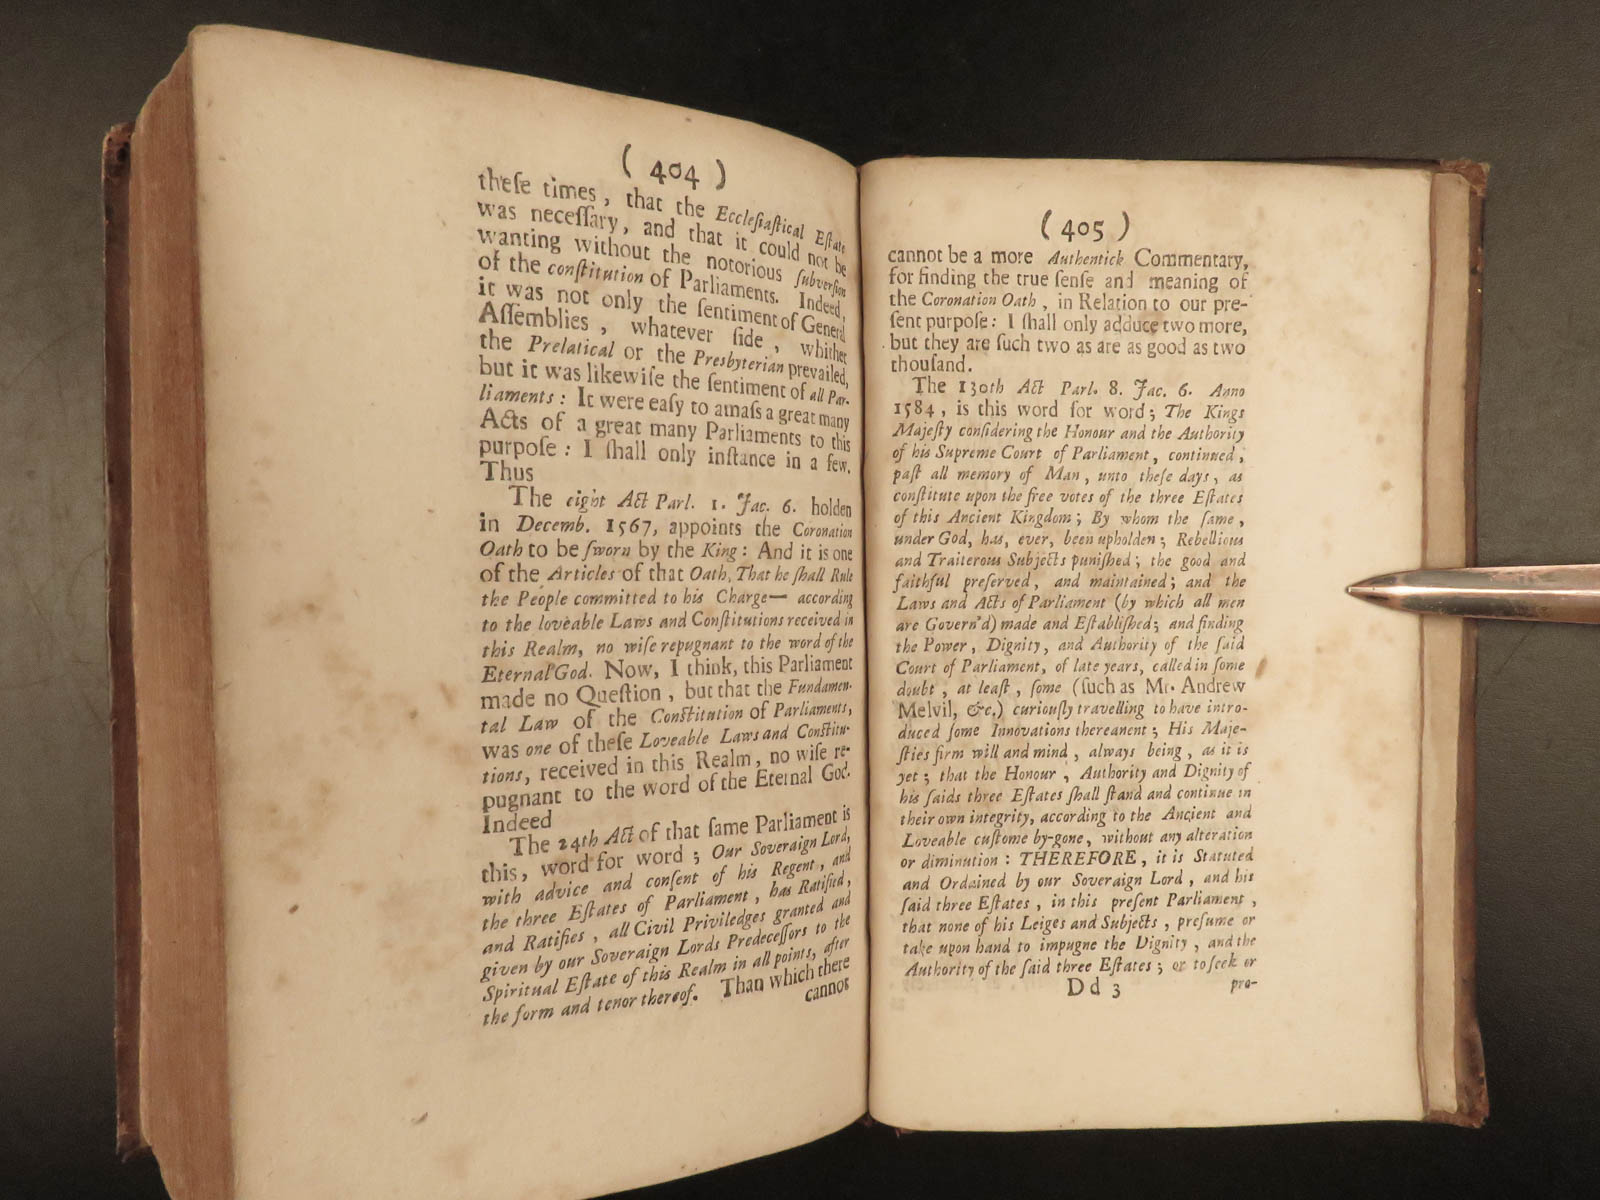 ( 404 )
theſe times, that the Eccleſiaſtical Eſtate
was neceſſary, and that it could not be
wanting without the notorious ſubverſion
of the conſtitution of Parliaments. Indeed,
it was not only the ſentiment of General
Aſſemblies, whatever ſide, whither
the Prelatical or the Presbyterian prevailed,
but it was likewiſe the ſentiment of all Par-
liaments: It were eaſy to amaſs a great many
Acts of a great many Parliaments to this
purpoſe: I ſhall only inſtance in a few.
Thus
The eight Act Parl. 1. Jac. 6. holden
in Decemb. 1567, appoints the Coronation
Oath to be ſworn by the King: And it is one
of the Articles of that Oath, That he ſhall Rule
the People committed to his Charge— according
to the loveable Laws and Conſtitutions received in
this Realm, no wiſe repugnant to the word of the
Eternal God. Now, I think, this Parliament
made no Queſtion, but that the Fundamen-
tal Law of the Conſtitution of Parliaments,
was one of theſe Loveable Laws and Conſtitu-
tions, received in this Realm, no wiſe re-
pugnant to the word of the Eternal God.
Indeed
The 24th Act of that ſame Parliament is
this, word for word; Our Soveraign Lord,
with advice and conſent of his Regent, and
the three Eſtates of Parliament, has Ratified,
and Ratifies, all Civil Priviledges granted and
given by our Soveraign Lords Predeceſſors to the
Spiritual Eſtate of this Realm in all points, after
the form and tenor thereof. Than which there
cannot
( 405 )
cannot be a more Authentick Commentary,
for finding the true ſenſe and meaning of
the Coronation Oath, in Relation to our pre-
ſent purpoſe: I ſhall only adduce two more,
but they are ſuch two as are as good as two
thouſand.
The 130th Act Parl. 8. Jac. 6. Anno
1584, is this word for word; The Kings
Majeſty conſidering the Honour and the Authority
of his Supreme Court of Parliament, continued,
paſt all memory of Man, unto theſe days, as
conſtitute upon the free votes of the three Eſtates
of this Ancient Kingdom; By whom the ſame,
under God, has, ever, been upholden; Rebellious
and Traiterous Subjects puniſhed; the good and
faithful preſerved, and maintained; and the
Laws and Acts of Parliament (by which all men
are Govern'd) made and Eſtabliſhed; and finding
the Power, Dignity, and Authority of the ſaid
Court of Parliament, of late years, called in ſome
doubt, at leaſt, ſome (ſuch as Mr. Andrew
Melvil, &c.) curiouſly travelling to have intro-
duced ſome Innovations thereanent; His Maje-
ſties firm will and mind, always being, as it is
yet; that the Honour, Authority and Dignity of
his ſaids three Eſtates ſhall ſtand and continue in
their own integrity, according to the Ancient and
Loveable cuſtome by-gone, without any alteration
or diminution: THEREFORE, it is Statuted
and Ordained by our Soveraign Lord, and his
ſaid three Eſtates, in this preſent Parliament,
that none of his Leiges and Subjects, preſume or
take upon hand to impugne the Dignity, and the
Authority of the ſaid three Eſtates; or to ſeek or
Dd 3 pro-